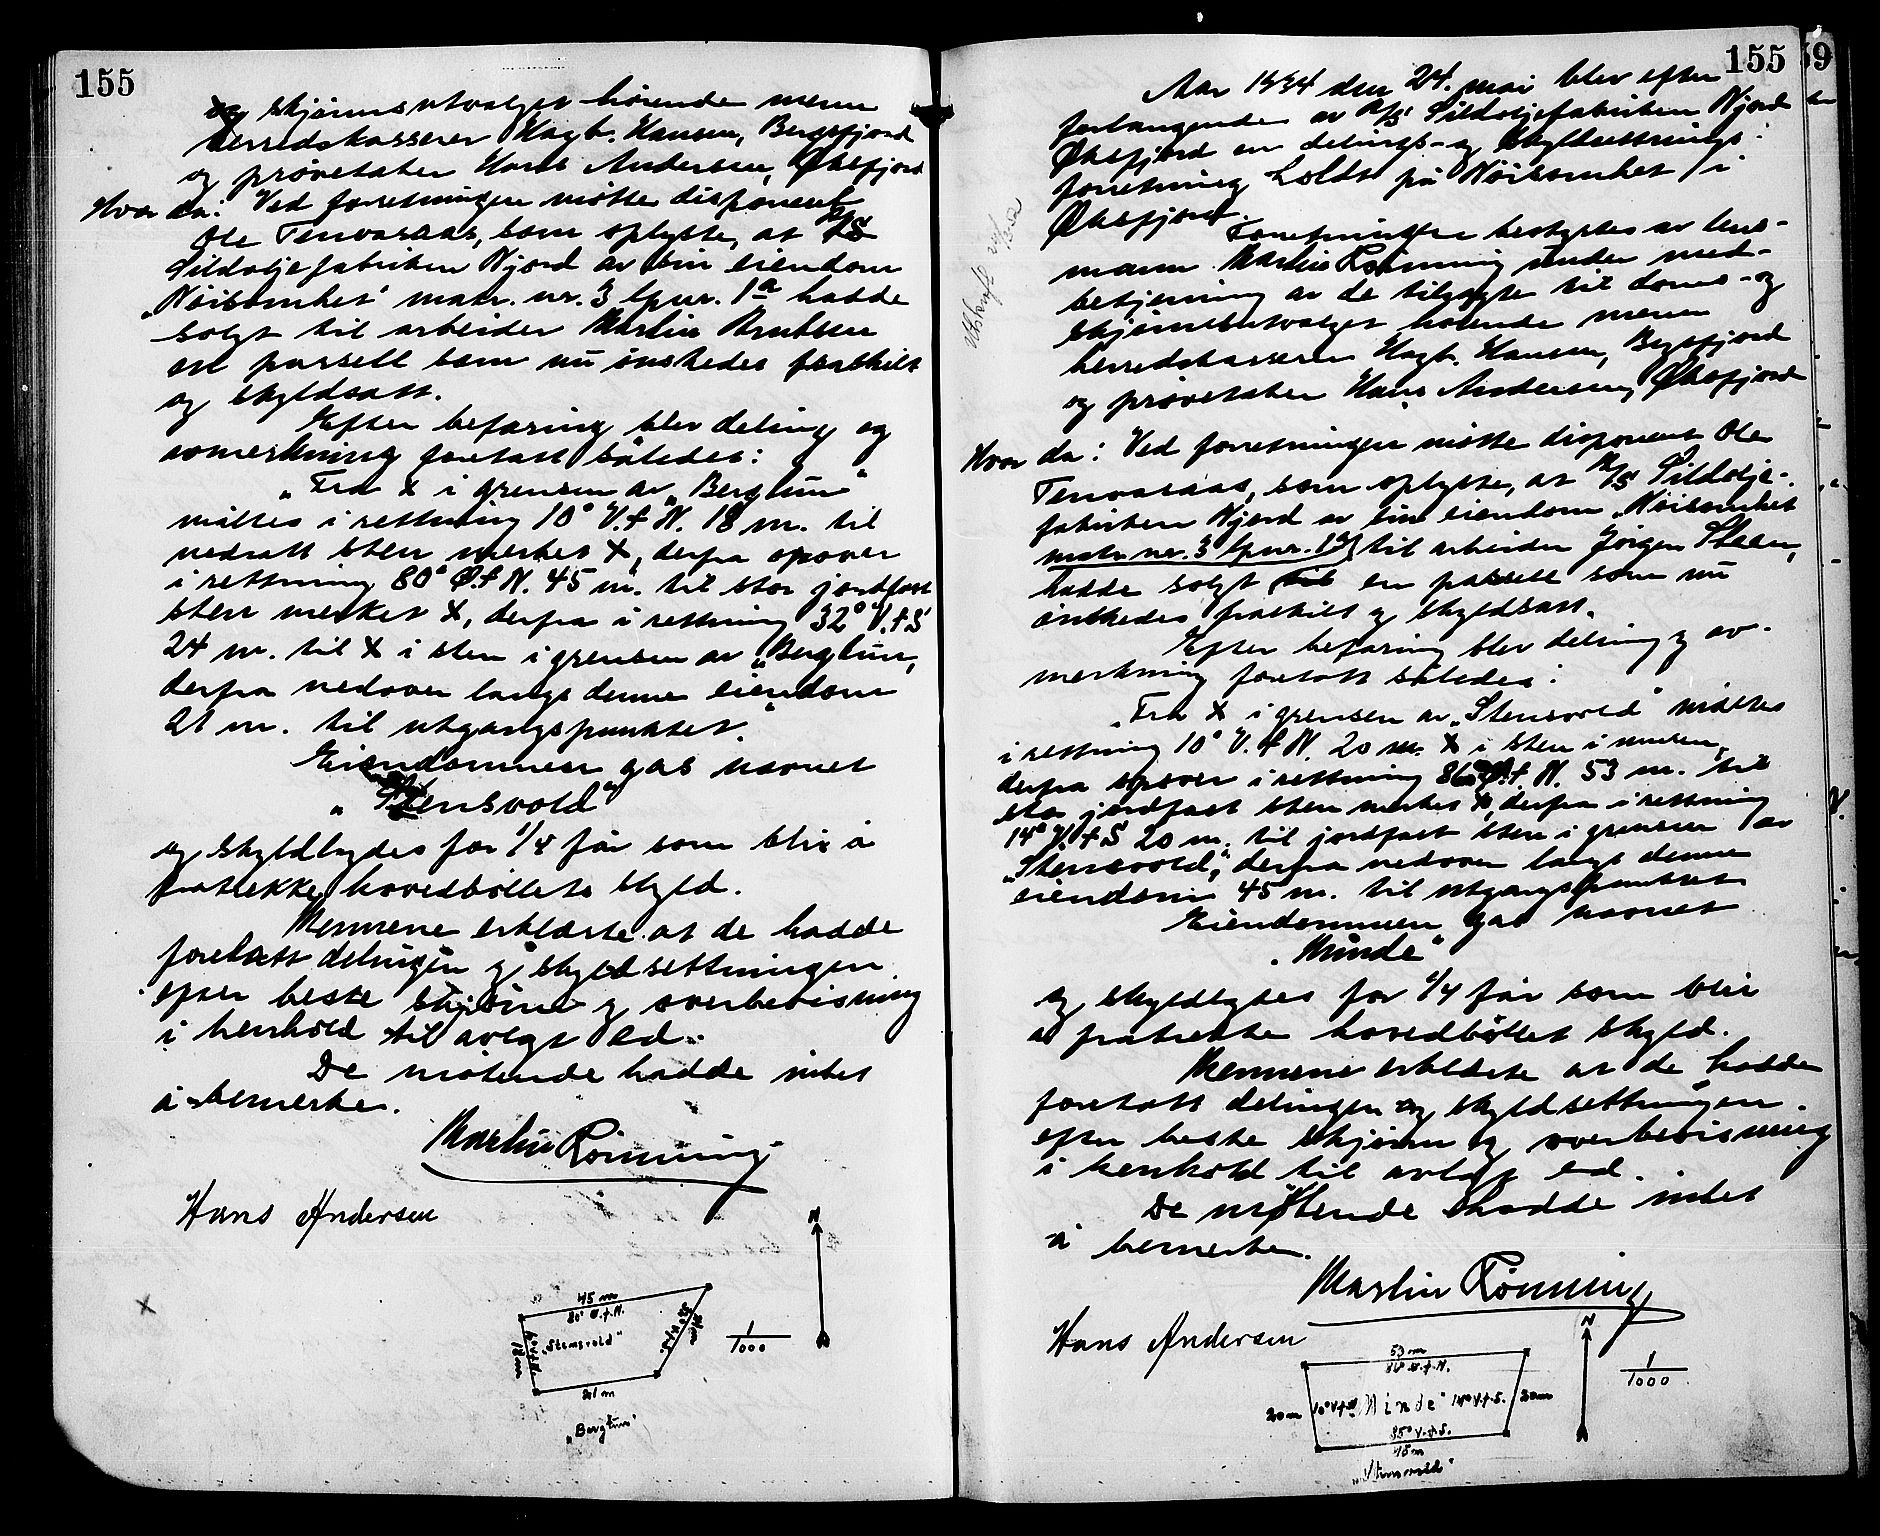 155
og skjønnsutvalget hørende menn
herredskasserer Hagb. Hansen, Bergsfjord
og prøvetaker Hans Andersen, Øksfjord
Hvor da: Ved forretningen møtte disponent
Ole Tenvaaas, som oplyste, at A/S
Sildoljefabriken Njord av sin eiendom
„Nøisomhet" matr. nr. 3 lpnr. 1a hadde
solgt til arbeider Martin Knutsen
en parsell som nu ønskedes fraskilt
og skyldsatt.
Efter befaring blev deling og
avmerkning foretatt således:
„Fra x i grensen av „Berglun"
måltes i rettning 10° V.f N. 18 m. til
nedsatt sten merket X, derfra opover
i rettning 80° Ø.f N. 45 m. til stor jordfast
sten merket X, derfra i rettning 32° V.f S
24 m. til X i sten i grensen av „Berglun",
derfra nedover langs denne eiendom
21 m. til utgangspunktet."
Eiendommen gas navnet
„Stensvold"
og skyldlydes for 1/4 før som blir å
fratrekke hovedbøllets skyld.
Mennene erklærte at de hadde
foretatt delingen og skyldsettningen
efter beste skjønn og overbevisning
i henhold til avlagt ed.
De møtende hadde intet
å bemerke.
Martin Rønning
Hans Andersen
N
45 m
80° Ø.f.N.
„Stensvold"
18 m
21 m
1/1000
„Berglun"
155
Aar 1934 den 24. mai blev efter
forlangende av A/S Sildoljefabriken Njord
Øksfjord en delings- og skyldsettnings-
forretning holdt på Nøisomhet i
Øksfjord.
Utskrift
Forretningen bestyrtes av lens-
mann Martin Rønning under med-
betjening av de tilsagte til doms- og
skjønnsutvalget hørende menn
herredskasserer Hagb. Hansen, Bergsfjord
og prøvetaker Hans Andersen, Øksfjord
Hvor da: Ved forretningen møtte disponent Ole
Tenvaaas, som oplyste, at A/S Sildolje-
fabriken Njord av sin eiendom „Nøisomhet
matr. nr. 3 lpnr. 1a til arbeider Jørgen Steen,
hadde solgt til en parsell som nu
ønskedes fraskilt og skyldsatt.
Efter befaring blev deling og av-
merkning foretatt således:
„Fra X i grensen av „Stensvold" måltes
i rettning 10° V.f N. 20 m. X i sten i muren,
derfra opover i rettning 86° Ø.f N. 53 m. til
stor jordfast sten merket X, derfra i rettning
14° V.f S 20 m. til jordfast sten i grensen av
„Stensvold", derfra nedover langs denne
eiendom 45 m. til utgangspunktet
Eiendommen gas navnet
„Minde"
og skyldlydes for 1/4 før som blir
å fratrekke hovedbøllet skyld.
Mennene erklærte at de hadde
foretatt delingen og skyldsettningen
efter beste skjønn og overbevisning
i henhold til avlagt ed.
De møtende hadde intet
å bemerke.
Martin Rønning
Hans Andersen
N
53 m
86° Ø.f.N.
20 m 10° V.f N „Minde" 14° V.f.S. 20 m
85° V.f.S.
45 m
„Stensvold"
1/1000